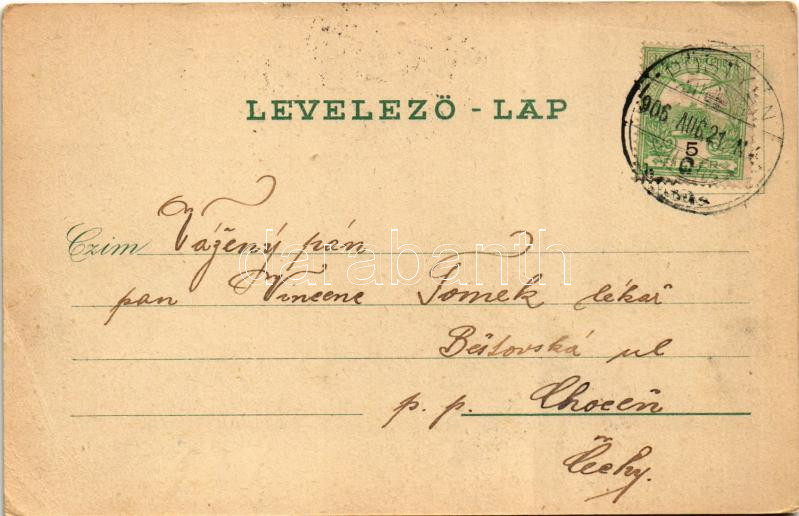 LEVELEZŐ - LAP
PÖSTYÉN
906 AUG 21
5
FILLÉR
Czim Vážený pán
darabanth
pan Vincenc Tomek lékař
Běstovská ul
p. p. Choceň
Čechy.